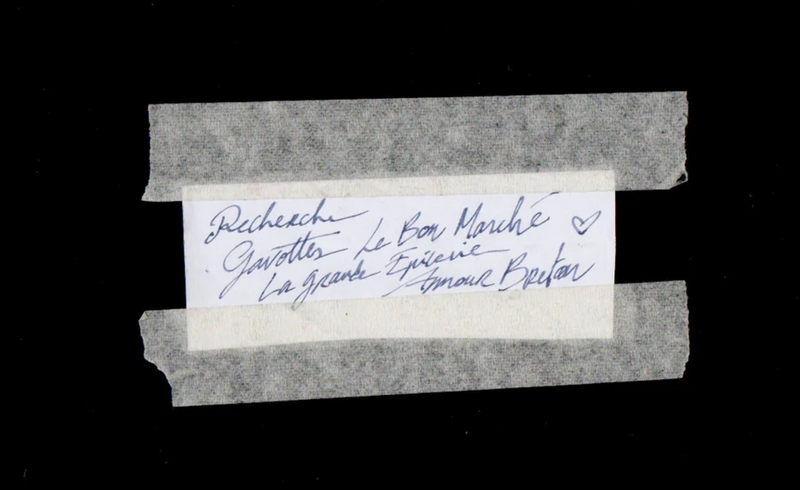 Recherche
Gavottes Le Bon Marché ♡
La grande Epicerie
Amour Breton